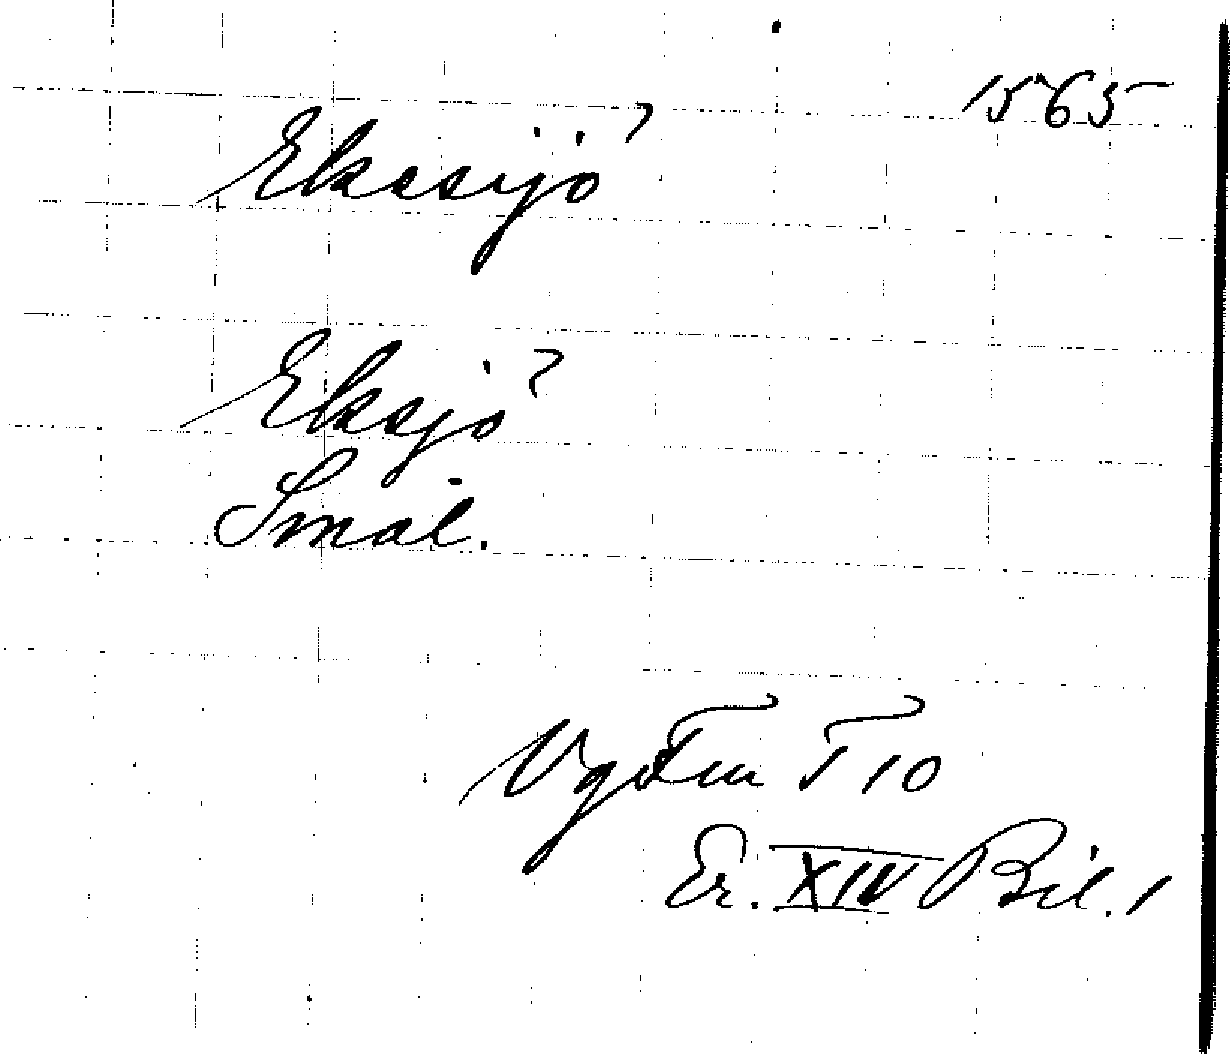 1565
Ekesijö
Eksjö
Smål.
Vgotın T 10
Er. XIV Bil. 1